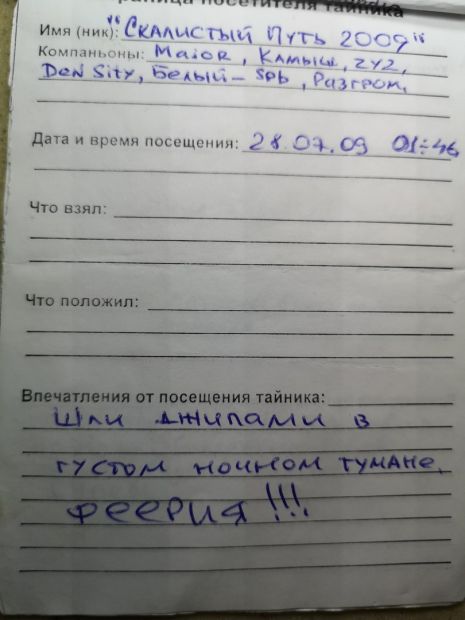 раница посетителя тайника
Имя (ник): "Скалистый Путь 2009"
Компаньоны: Maior, Камыш, ZYZ,
Den Sity, Белый-Spb, Разгром,
Дата и время посещения: 28.07.09 01:46
Что взял:
Что положил:
Впечатления от посещения тайника:
Шли джипами в
густом ночном тумане.
Феерия!!!